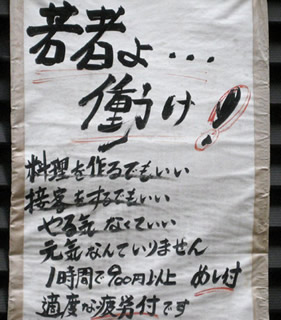 若者よ...
働け!
料理を作るでもいい
接客をするでもいい
やる気なくていい
元気なんていりません
1時間で900円以上 めし付
適度な疲労付です